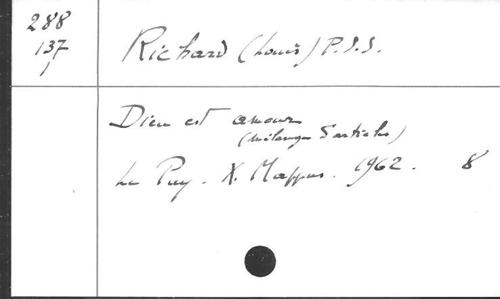 288
137
1
Richard (Louis) P.S.S.
Dieu est amour
(mélanges 5 articles)
Le Puy. X. Mappus. 1962. 8